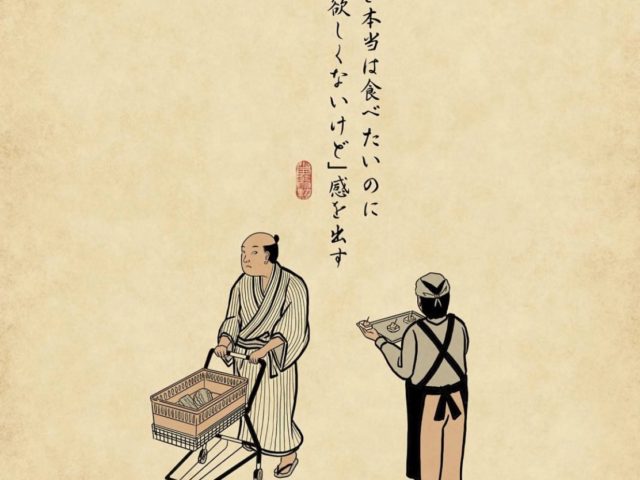 本当は食べたいのに
欲しくないけど」感を出す